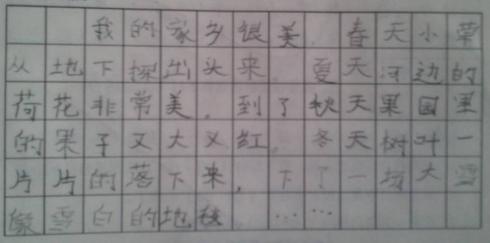 我的家乡很美。春天小草
从地下探出头来。夏天河边的
荷花非常美。到了秋天果园里
的果子又大又红。冬天树叶一
片片的落下来，下了一场大雪
像雪白的地毯。……